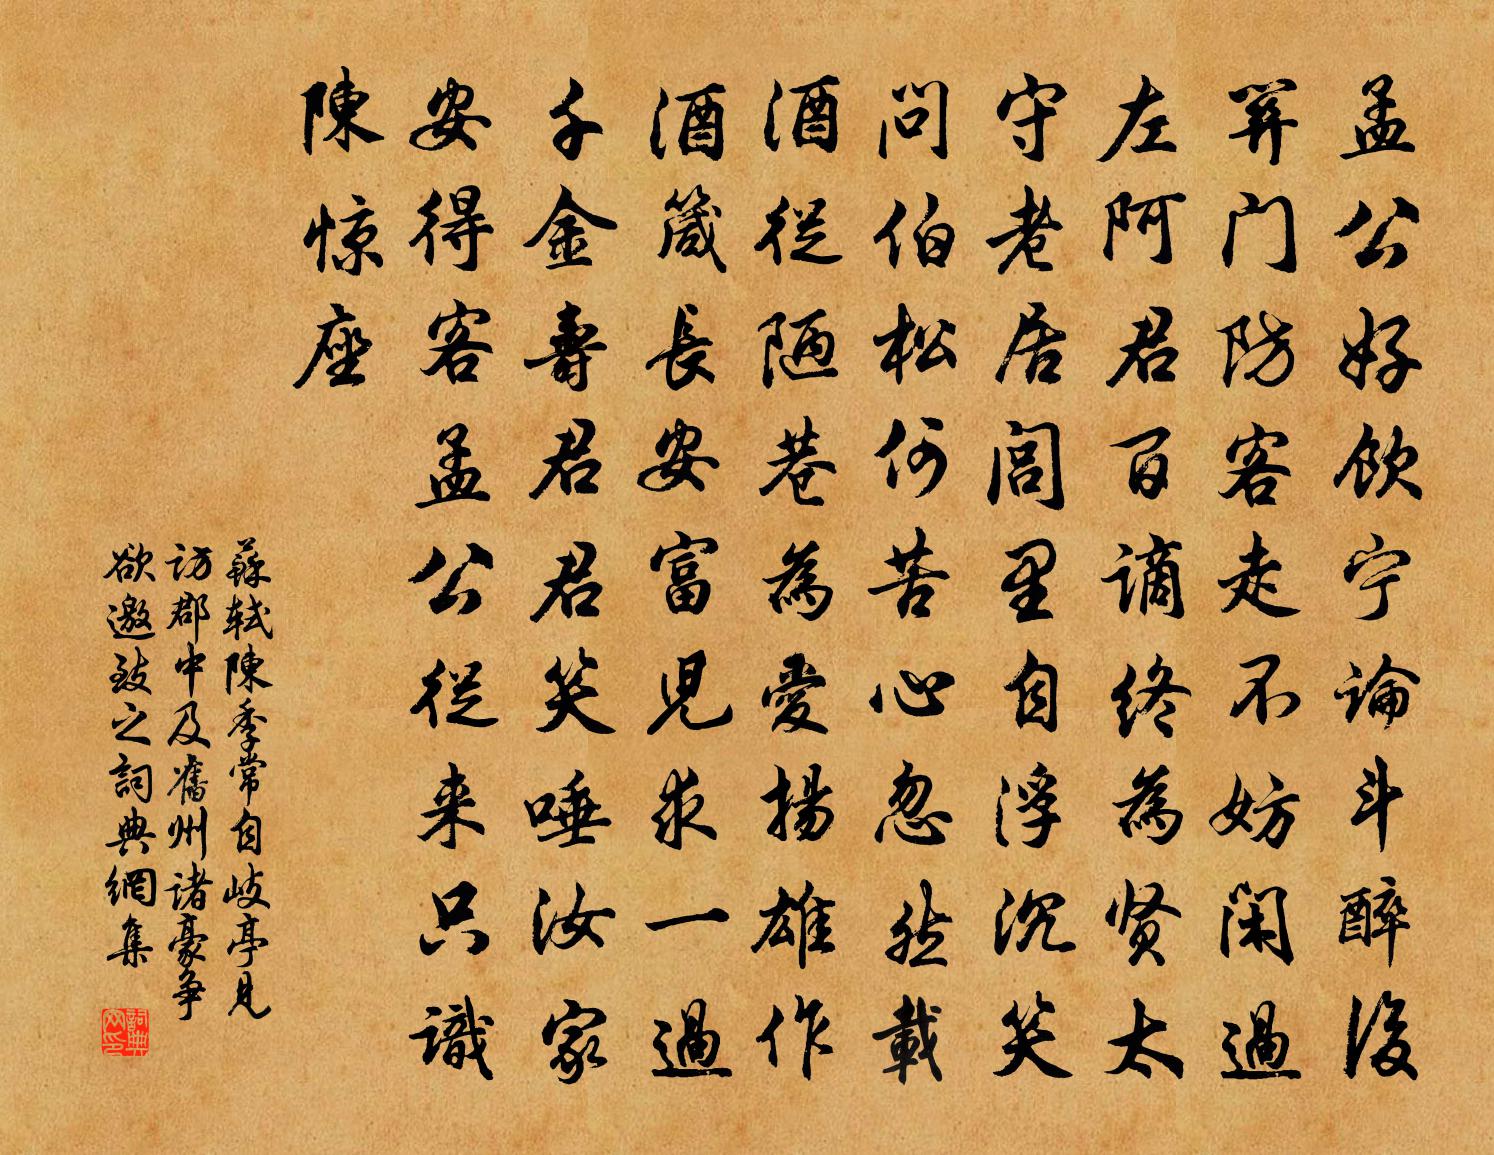 孟公好飲宁論斗醉後
関門防客走不妨閑過
左阿君百谪終為贤太
守老居閭里自浮沉笑
問伯松何苦心忽然載
酒從陋巷為愛揚雄作
酒箴長安富兒求一過
千金壽君君笑唾汝家
安得客孟公從来只識
陳惊座
蘇軾陳季常自岐亭見
訪郡中及舊州诸豪争
欲邀致之詞典網集
詞典网印